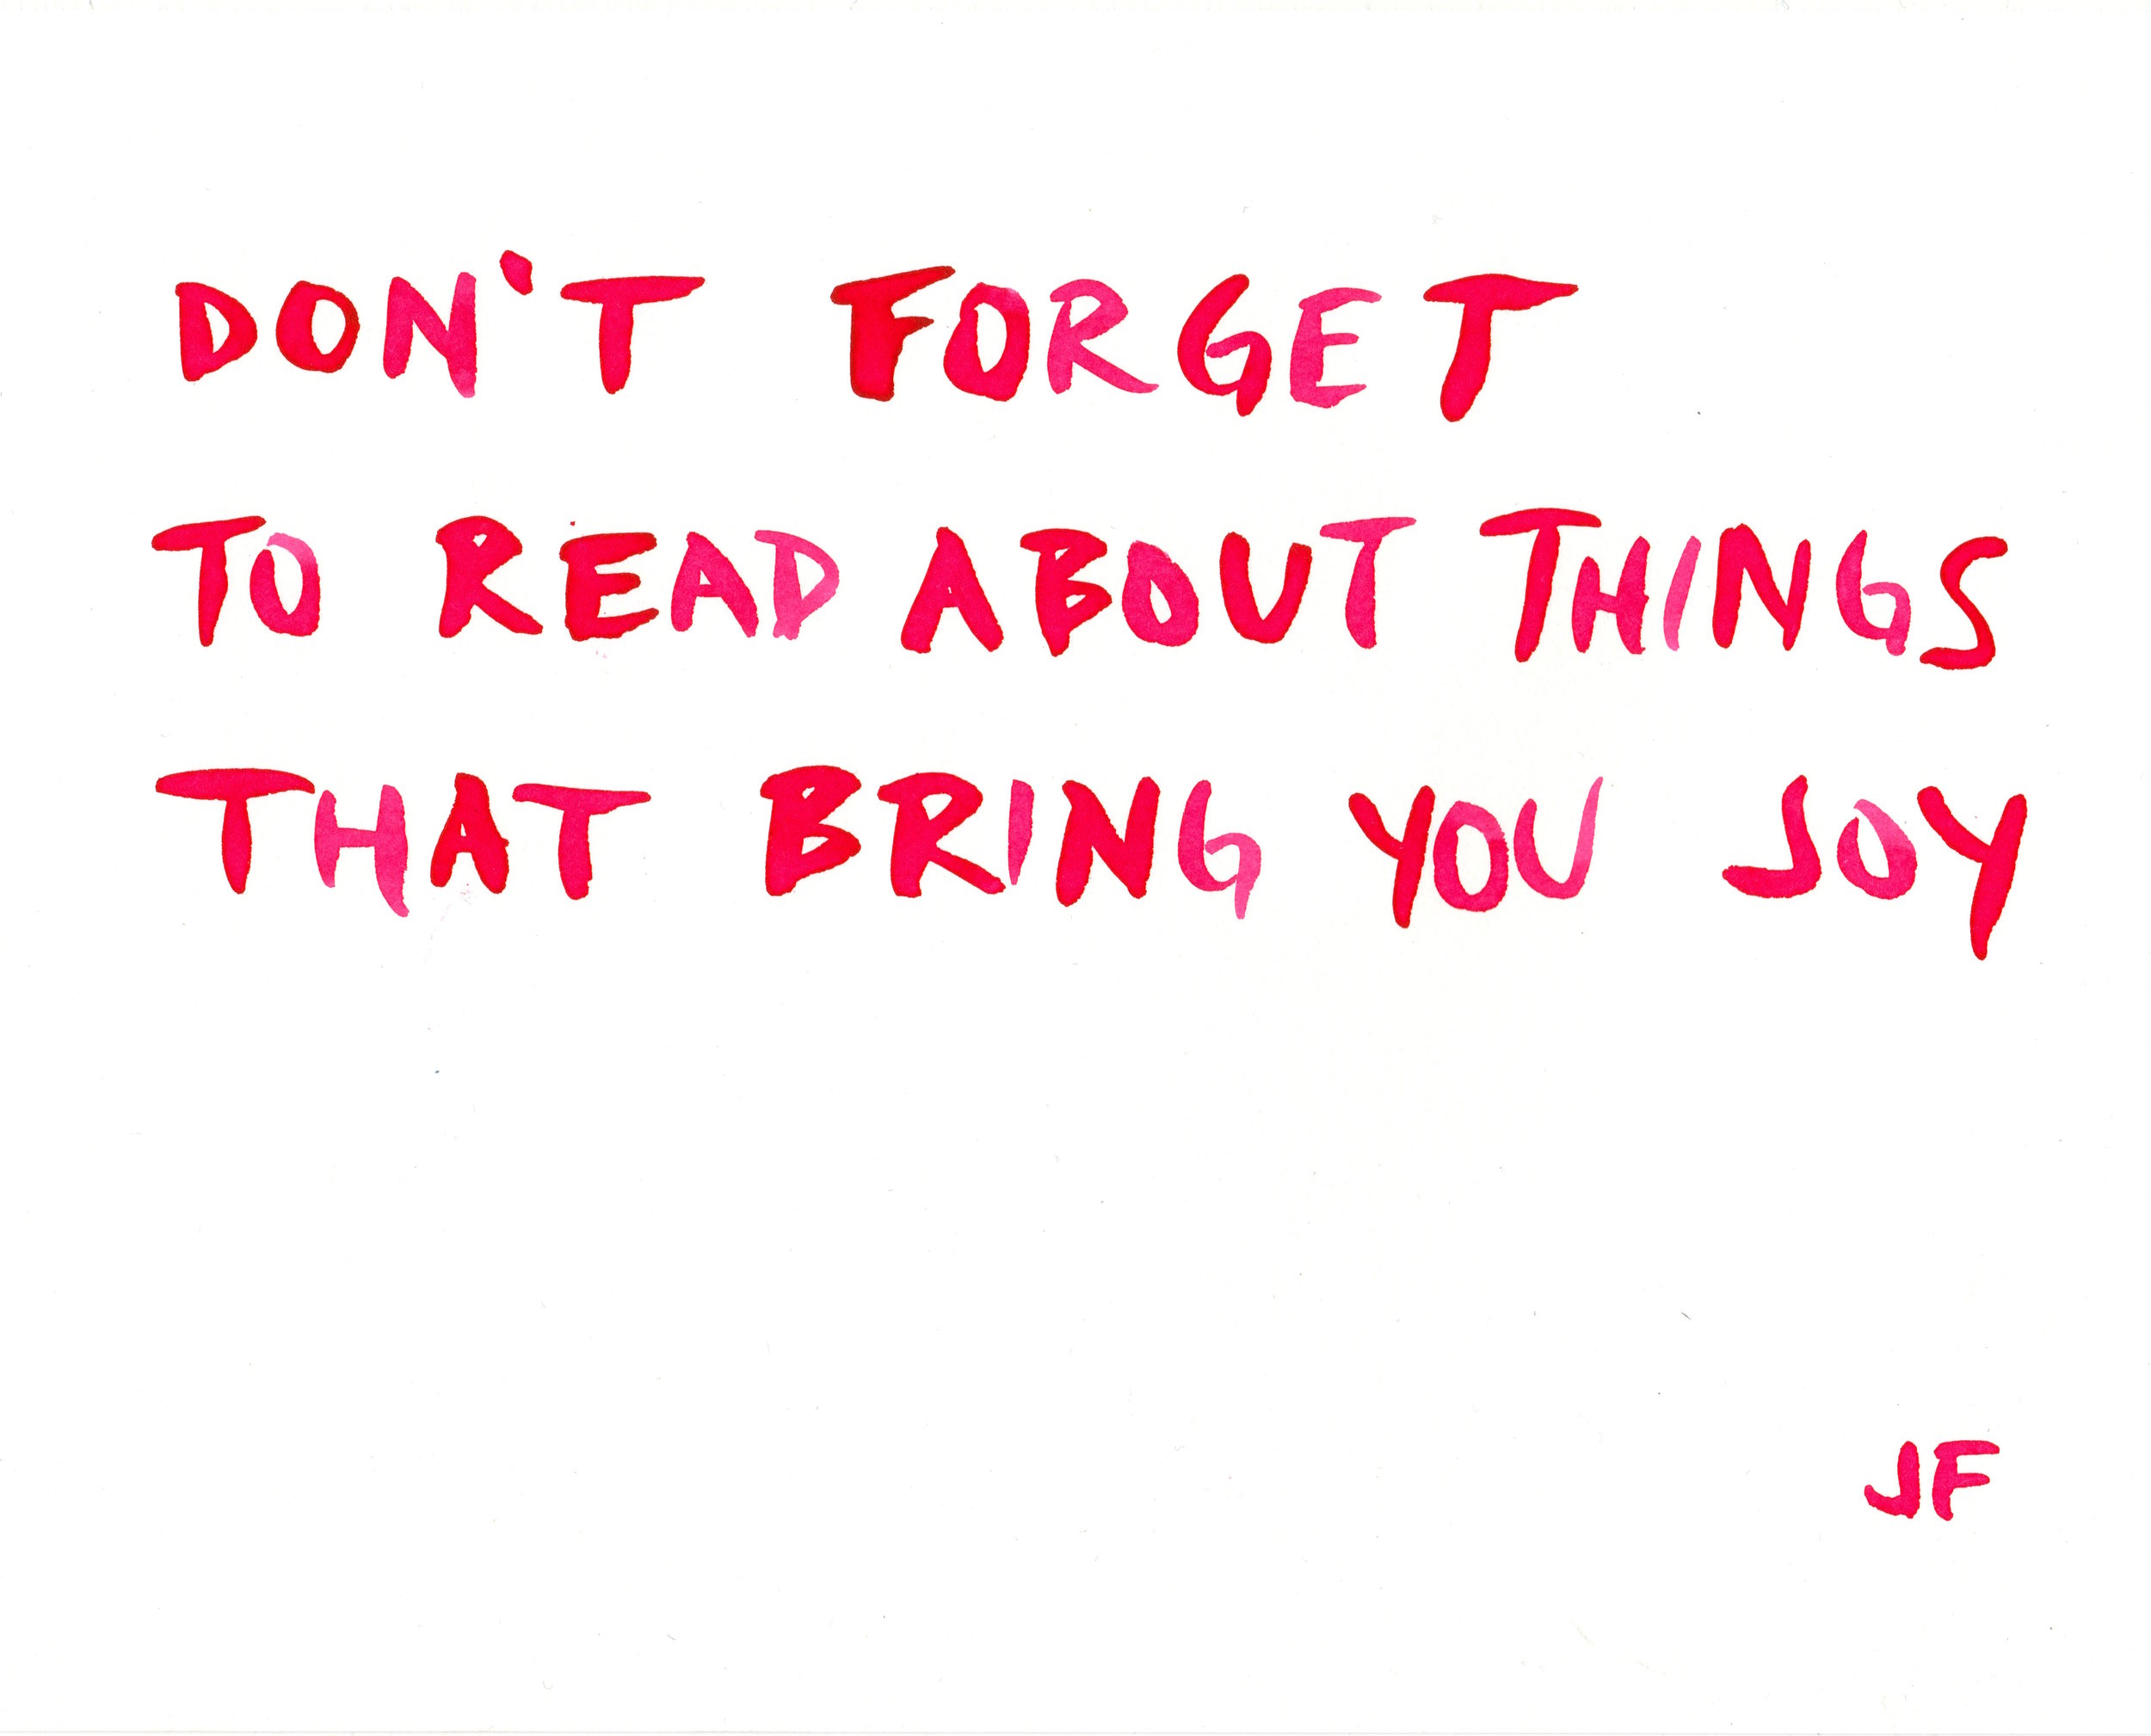 DON'T FORGET
TO READ ABOUT THINGS
THAT BRING YOU JOY
JF